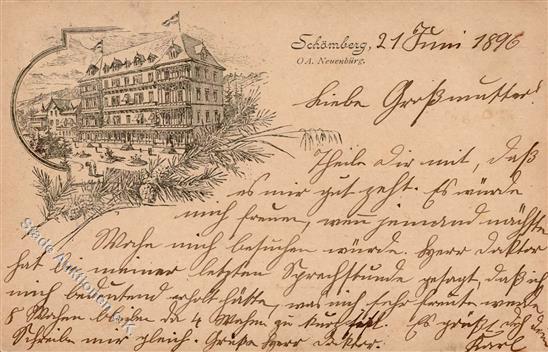 Schömberg, 21 Juni 1896
O.A. Neuenbürg.
Liebe Großmutter!
Theile dir mit, daß
es mir gut geht. Es würde
mich freuen, wenn jemand nächste
Woche mich besuchen würde. Herr Doktor
hat bei meiner letzten Sprechstunde gesagt, daß ich
mich bedeutend erholt hätte, was mich sehr freute wenn
8 Wochen bleiben da 4 Wochen zu kurz ist. Es grüßt dich dein
Schreibe mir gleich. Grüße Herr Doktor. Karl